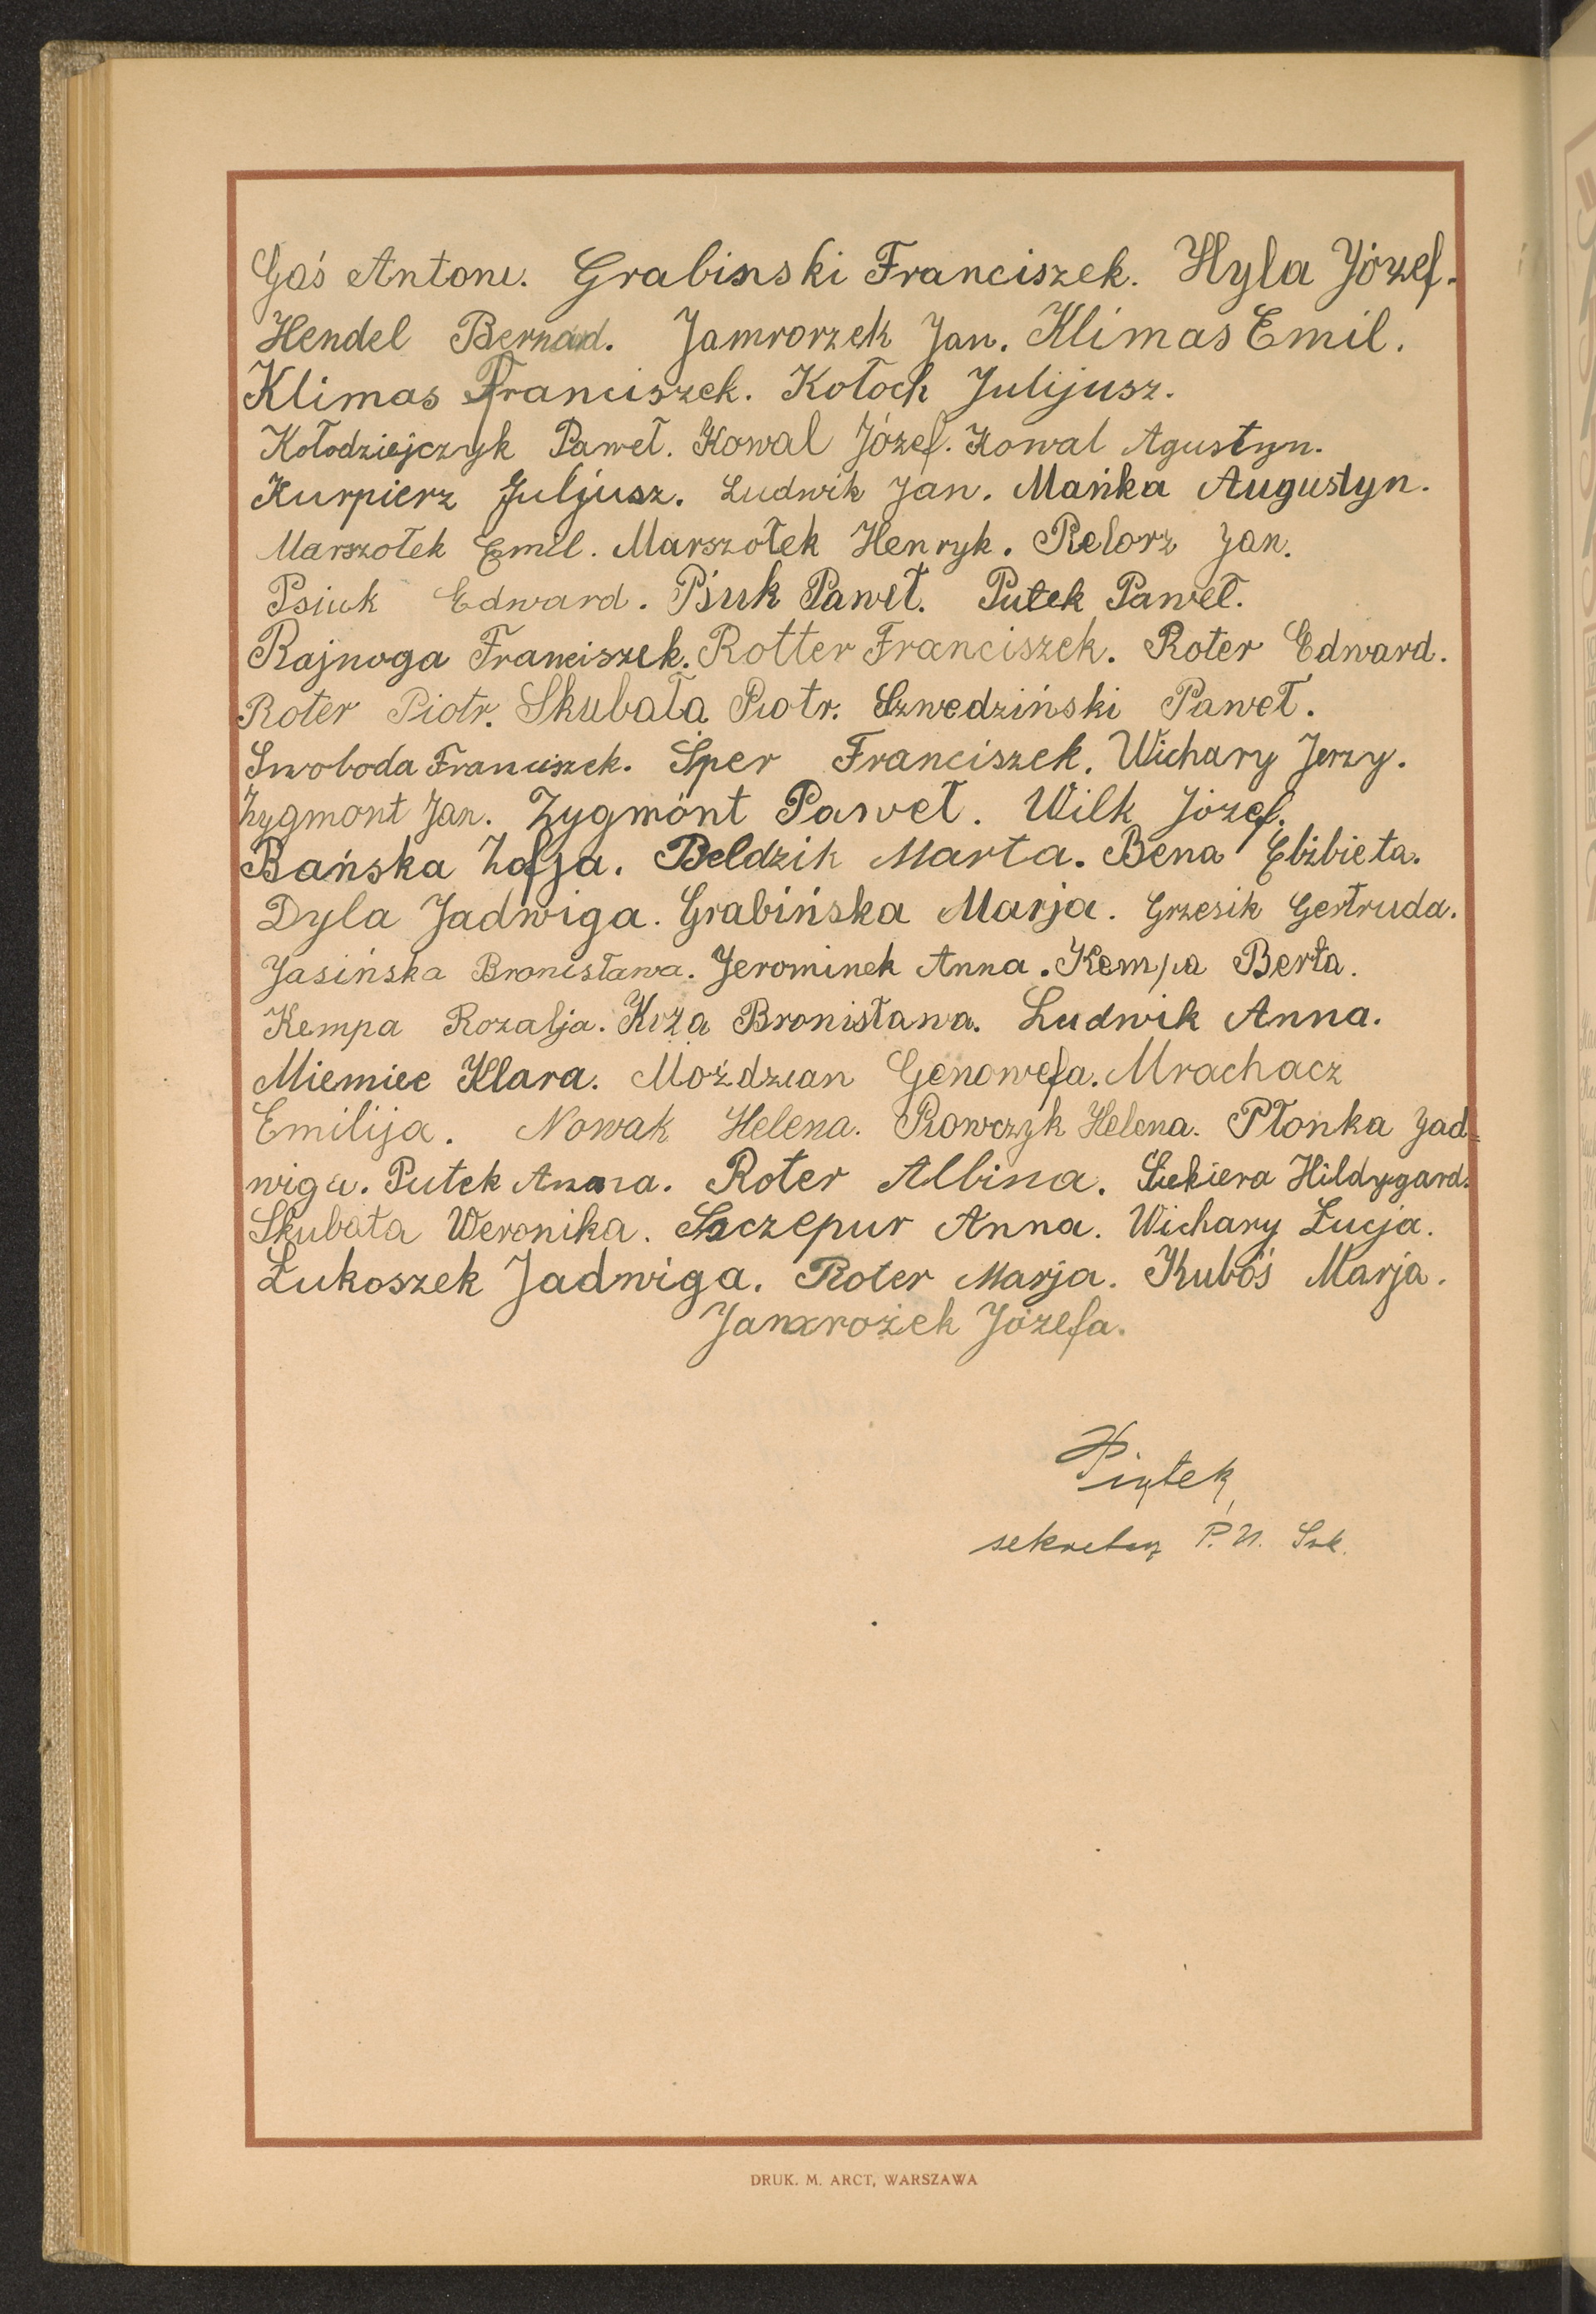 Goś Antoni. Grabinski Franciszek. Hyla Józef.
Hendel Bernard. Jamrorzek Jan. Klimas Emil.
Klimas Franciszek. Kołoch Julijusz.
Kołodziejczyk Paweł. Kowal Józef. Kowal Agustyn.
Kurpierz Juljusz. Ludwik Jan. Mańka Augustyn.
Marszołek Emil. Marszołek Henryk. Pelorz Jan.
Psiuk Edward. Psiuk Paweł. Putek Paweł.
Rajnoga Franciszek. Rotter Franciszek. Roter Edward.
Roter Piotr. Skubała Piotr. Szwedziński Paweł.
Swoboda Franciszek. Sper Franciszek. Wichary Jerzy.
Zygmont Jan. Zygmont Paweł. Wilk Józef.
Bańska Zofja. Beldzik Marta. Bena Elżbieta.
Dyla Jadwiga. Grabińska Marja. Grzesik Gertruda.
Jasińska Bronisława. Jerominek Anna. Kempa Berta.
Kempa Rozalja. Koza Bronisława. Ludwik Anna.
Miemiec Klara. Moździan Genowefa. Mrachacz
Emilija. Nowak Helena. Pawczyk Helena. Płonka Jad=
wiga. Putek Anna. Roter Albina. Siekiera Hildygard.
Skubała Weronika. Szczepur Anna. Wichary Łucja.
Łukoszek Jadwiga. Roter Marja. Kuboś Marja.
Jamrożek Józefa.
Piątek
sekretarz P. U. Szk.
DRUK. M. ARCT, WARSZAWA